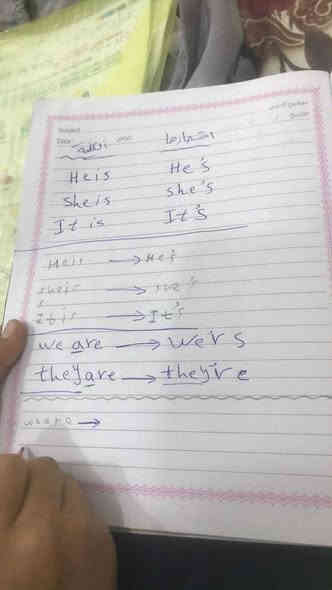 Subject
Date
الكلمة اختصارها
He is He's
She is she's
It is It's
He is → He's
she is → she's
It is → It's
we are → we'r s
they are → they're
we are →